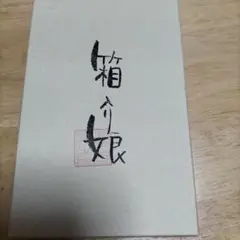 箱入り娘